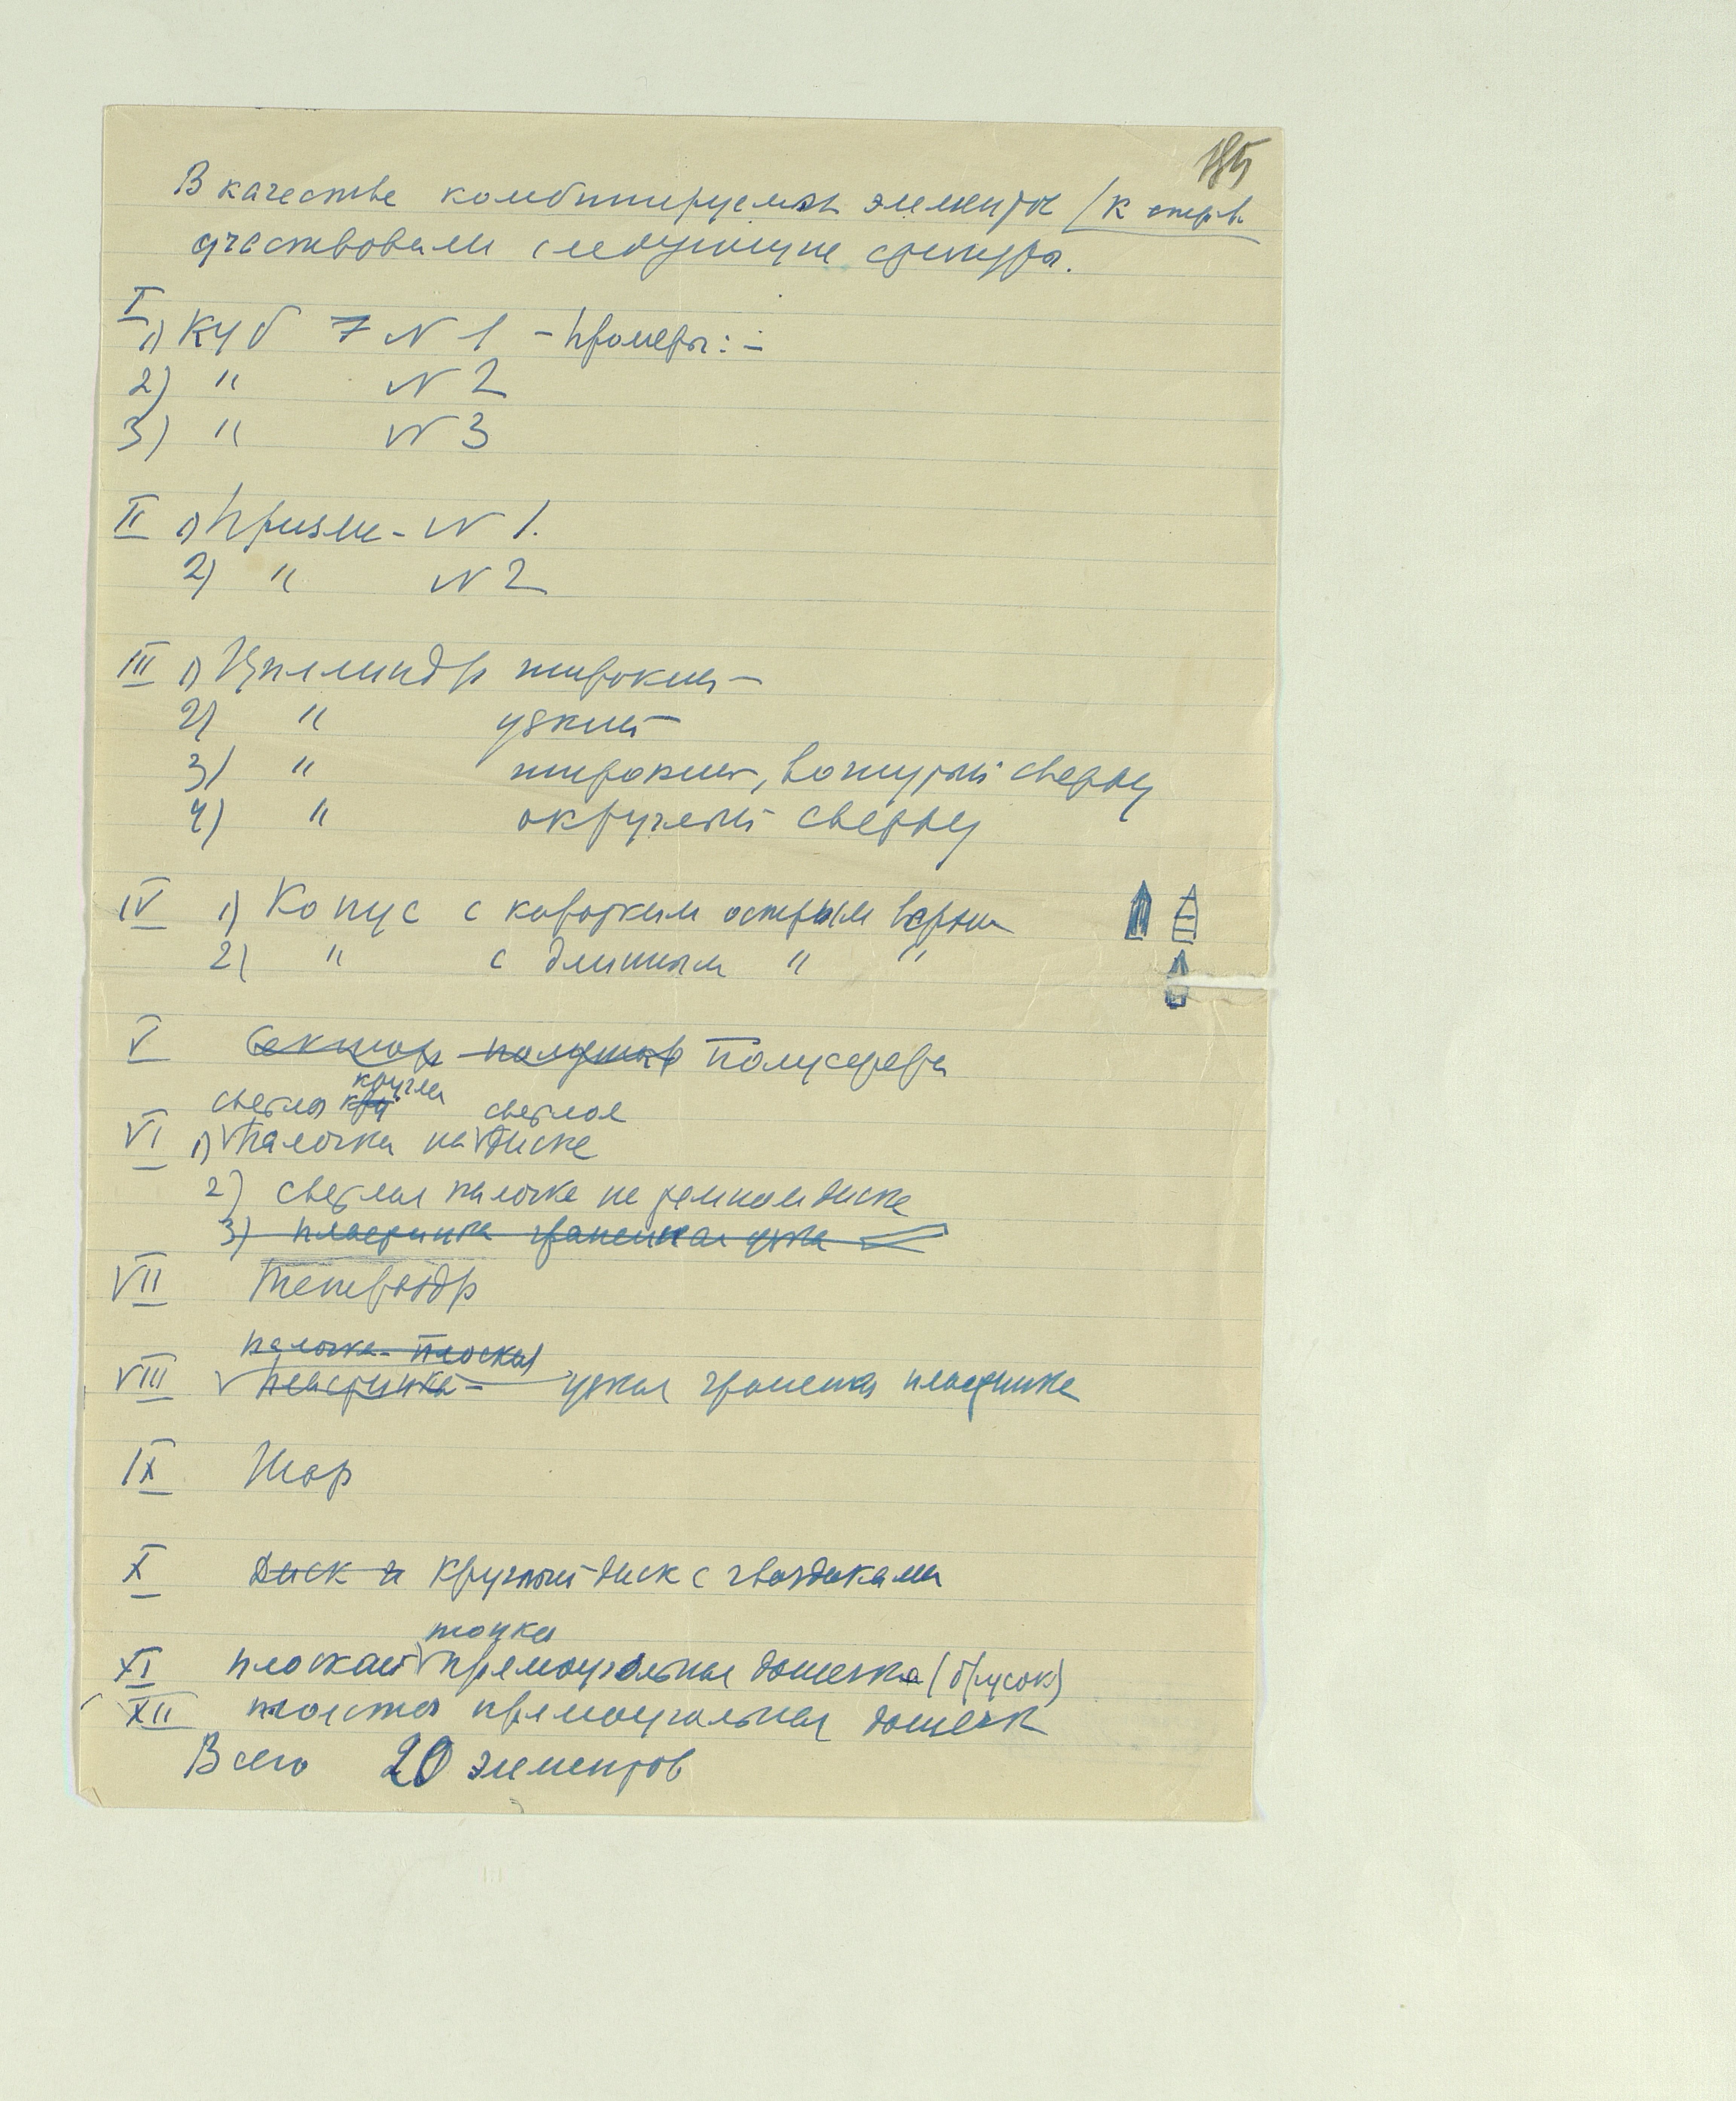 185
В качестве комбинируемых элементов (к стр.
участвовали следующие фигуры.
I
1) Куб № 1 – Промеры: –
2) " № 2
3) " № 3
II 1) Призма – № 1.
2) " № 2
III 1) Цилиндр широкий –
2) " узкий –
3) " широкий, вогнутый сверху
4) " округлый сверху
IV 1) Конус с коротким острым верхом
2) " с длинным " "
V Сектор полушар Полусфера
светлая кру круглая светлом
VI 1) палочка на диске
2) светлая палочка на темном диске
3) пластинка граненная узкая
VII Тетраэдр
палочка – плоская
VIII пластинка – узкая граненая пластинка
IX Шар
X Диск и круглый диск с гвоздиками
тонкая
XI плоская прямоугольная дощечка (брусок)
XII толстая прямоугольная дощечк
Всего 20 элементов